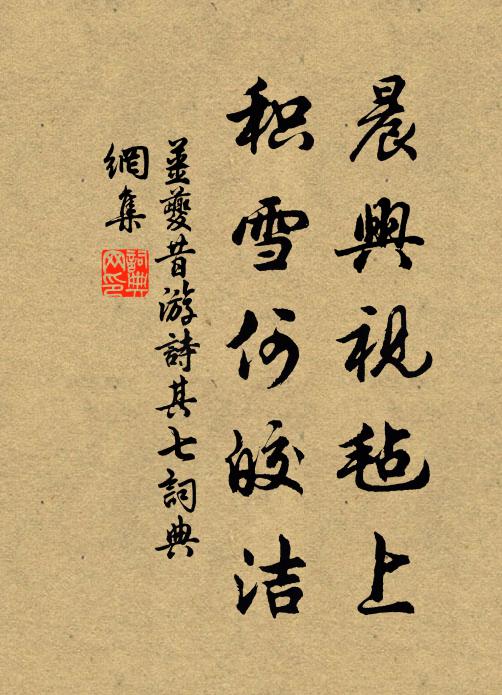 晨興視毡上
积雪何皎洁
姜夔昔游詩其七詞典
網集
詞典网印